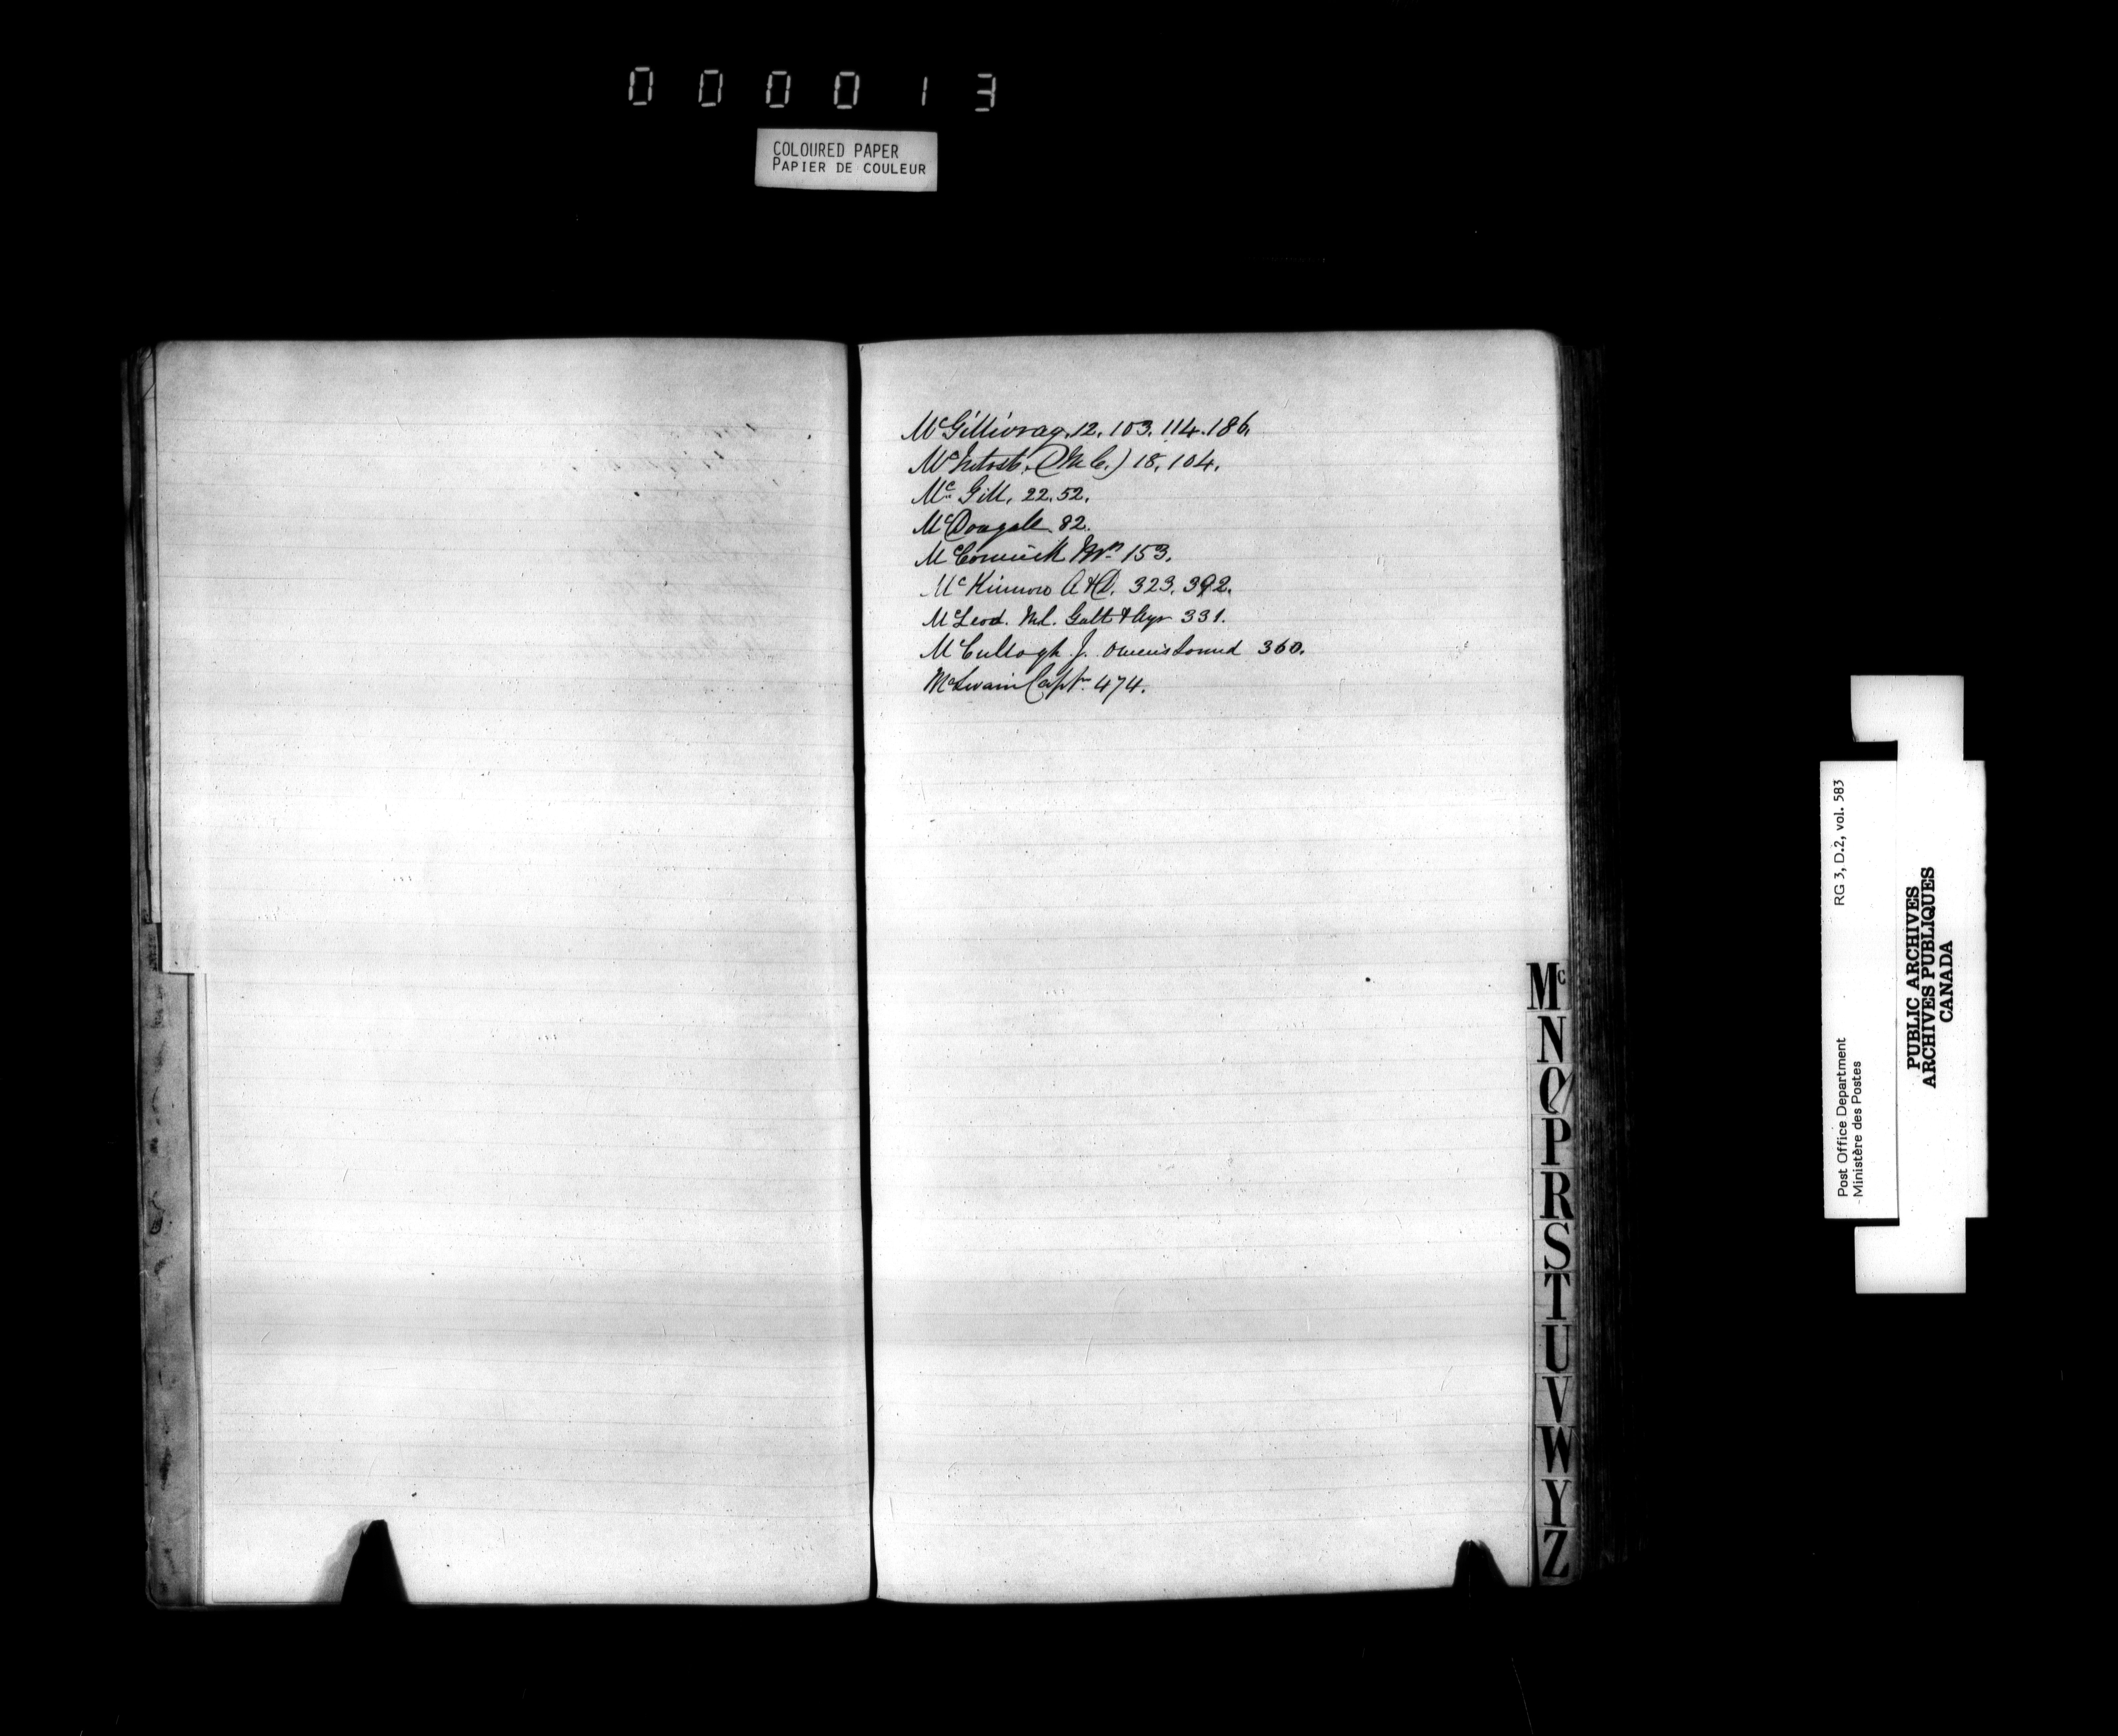 0 0 0 0 1 3
COLOURED PAPER
PAPIER DE COULEUR
McGillivray. 12. 103. 114. 186.
McIntosh. (M C.) 18. 104.
Mc Gill. 22. 52.
McDougall 82.
McCormick Wm 153.
Mc Kinnon A & D. 323. 392.
McLeod. Ml. Galt & Ayr 331.
McCullogh J. Owens Sound 360.
Capt. 474.
Mc
N
O
P
R
S
T
U
V
W
Y
Z
Post Office Department
Ministère des Postes
RG 3, D.2, vol. 583
PUBLIC ARCHIVES
ARCHIVES PUBLIQUES
CANADA